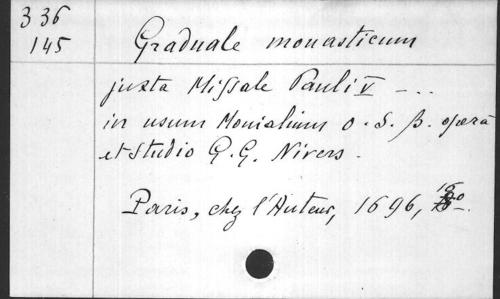 336
145
Graduale monasticum
juxta Missale Pauli V - ..
in usum Monialium O. S. B. opera
et studio G. G. Nivers.
Paris, chez l'Auteur, 1696,